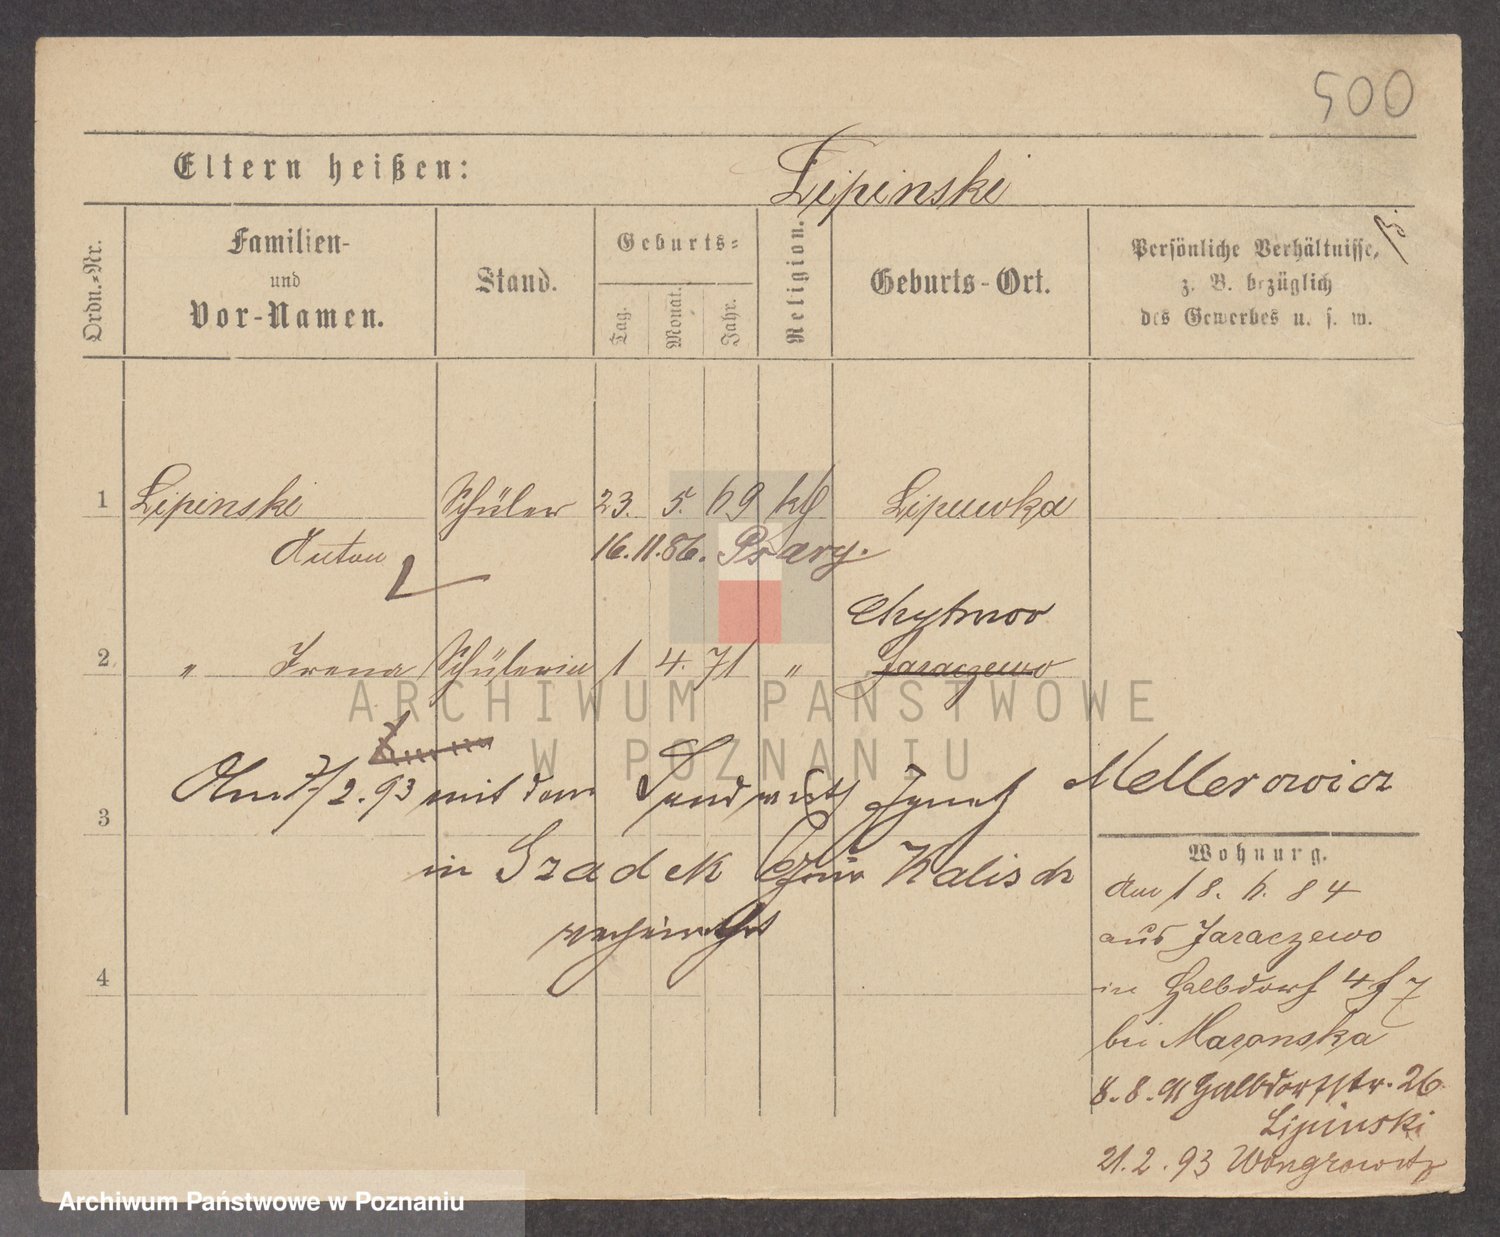 500
Eltern heißen:
Lipinski
Ordn.-Nr.
Familien-
und
Vor-Namen.
Stand.
Geburts-
Tag.
Monat.
Jahr.
Religion.
Geburts-Ort.
Persönliche Verhältnisse,
z. B. bezüglich
des Gewerbes u. s. w.
1 Lipinski Schüler 23. 5. 69 kth Lipuwka
Anton 16.11.86. Psary.
Chytrow
2 " Irena Schülerin 1 4. 71 " Jaraczewo
ARCHIWUM PAŃSTWOWE
W POZNANIU
Am 7/2.93 mit dem Landwirth Ignatz Mellerowicz
3
in Gradek Kalisch
verheirathet
4
Wohnung.
Am 18. 6. 84
aus Jaraczewo
in Halbdorf 4
bei Maronska
8.8.91 Halbdorfstr. 26
Lipinski
21.2.93 Wongrowitz
Archiwum Państwowe w Poznaniu